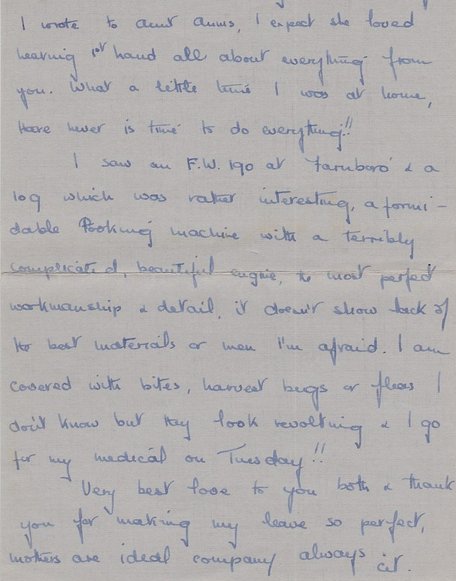 I wrote to aunt Anns, I expect she loved
hearing 1st hand all about everything from
you. What a little time I was at home,
there never is time to do everything!!
I saw an F.W. 190 at Farnboro' & a
109 which was rather interesting, a formi-
dable looking machine with a terribly
complicated, beautiful engine, the most perfect
workmanship & detail, it doesn't show lack of
the best materials or men I'm afraid. I am
covered with bites, harvest bugs or fleas I
don't know but they look revolting & I go
for my medical on Tuesday!!
Very best love to you both & thank
you for making my leave so perfect,
mothers are ideal company always